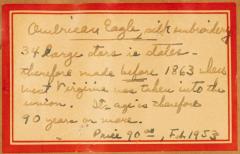 American Eagle silk embroidery
34 large stars in
therefore made before 1863 when
West Virginia was taken into the
union. Its age is therefore
90 years or more.
Price 90.00, Feb. 1953